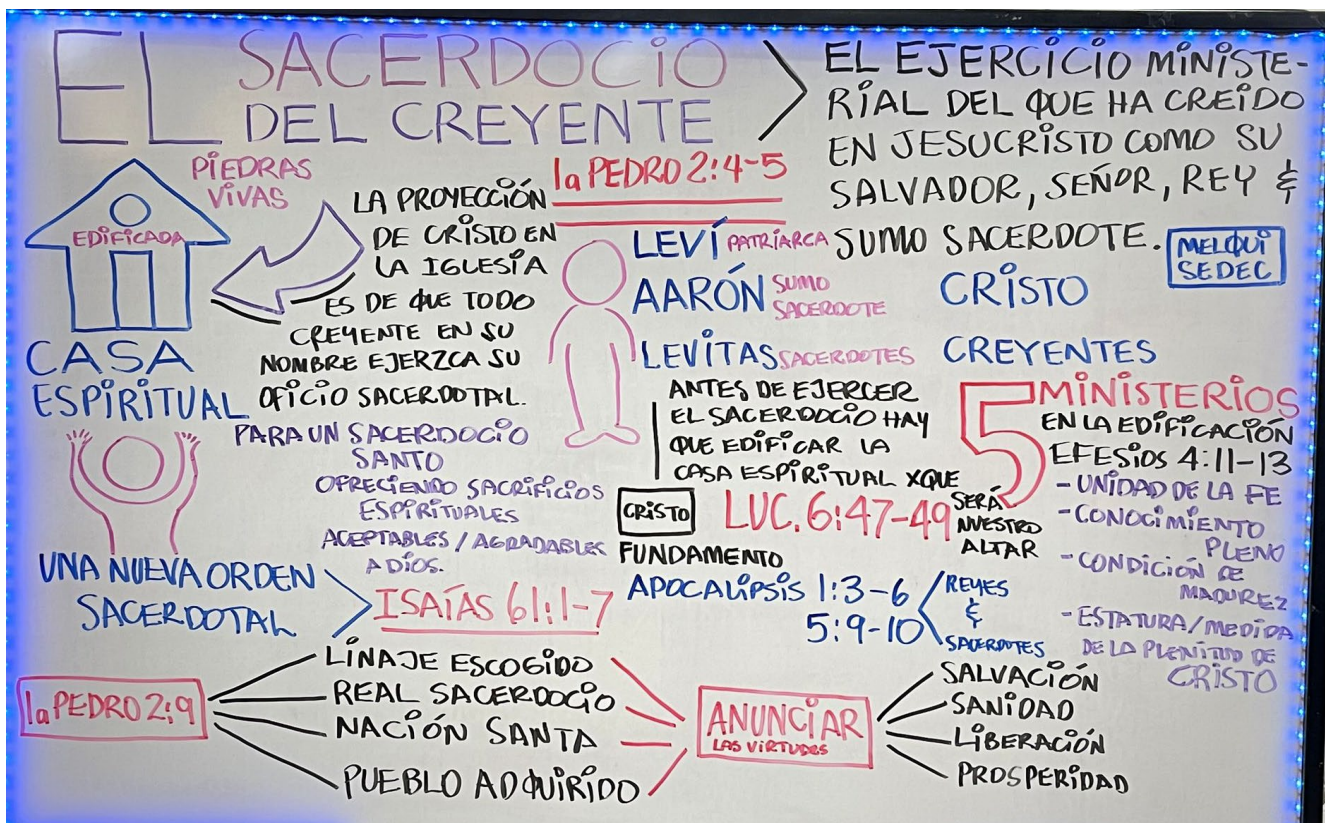 EL SACERDOCIO
DEL CREYENTE
EL EJERCICIO MINISTE-
RIAL DEL QUE HA CREIDO
EN JESUCRISTO COMO SU
SALVADOR, SEÑOR, REY &
SUMO SACERDOTE.
MELQUI
SEDEC
PIEDRAS
VIVAS
EDIFICADA
CASA
ESPIRITUAL
1a PEDRO 2:4-5
LA PROYECCIÓN
DE CRISTO EN
LA IGLESÍA
ES DE QUE TODO
CREYENTE EN SU
NOMBRE EJERZCA SU
OFICIO SACERDOTAL.
PARA UN SACERDOCIO
SANTO
OFRECIENDO SACRIFICIOS
ESPIRITUALES
ACEPTABLES / AGRADABLES
A DÍOS.
LEVÍ PATRÍARCA
AARÓN SUMO
SACERDOTE
CRISTO
LEVITAS SACERDOTES
CREYENTES
ANTES DE EJERCER
EL SACERDOCIO HAY
QUE EDIFICAR LA
CASA ESPIRITUAL XQUE
SERÁ
NUESTRO
ALTAR
CRISTO
FUNDAMENTO
LUC. 6:47-49
5 MINISTERIOS
EN LA EDIFICACIÓN
EFESIOS 4:11-13
- UNIDAD DE LA FE
- CONOCIMIENTO
PLENO
- CONDICIÓN DE
MADUREZ
- ESTATURA/MEDIDA
DE LA PLENITUD DE
CRISTO
UNA NUEVA ORDEN
SACERDOTAL
ISAÍAS 61:1-7
APOCALIPSIS 1:3-6
5:9-10
REYES
&
SACERDOTES
1a PEDRO 2:9
LINAJE ESCOGIDO
REAL SACERDOCIO
NACIÓN SANTA
PUEBLO ADQUIRIDO
ANUNCIAR
LAS VIRTUDES
SALVACIÓN
SANIDAD
LIBERACIÓN
PROSPERIDAD